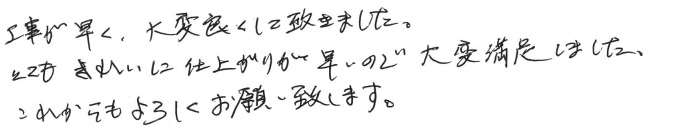 工事が早く、大変良くして致きました。
とても きれいに 仕上がりが 早いので 大変満足しました、
これからもよろしくお願い致します。